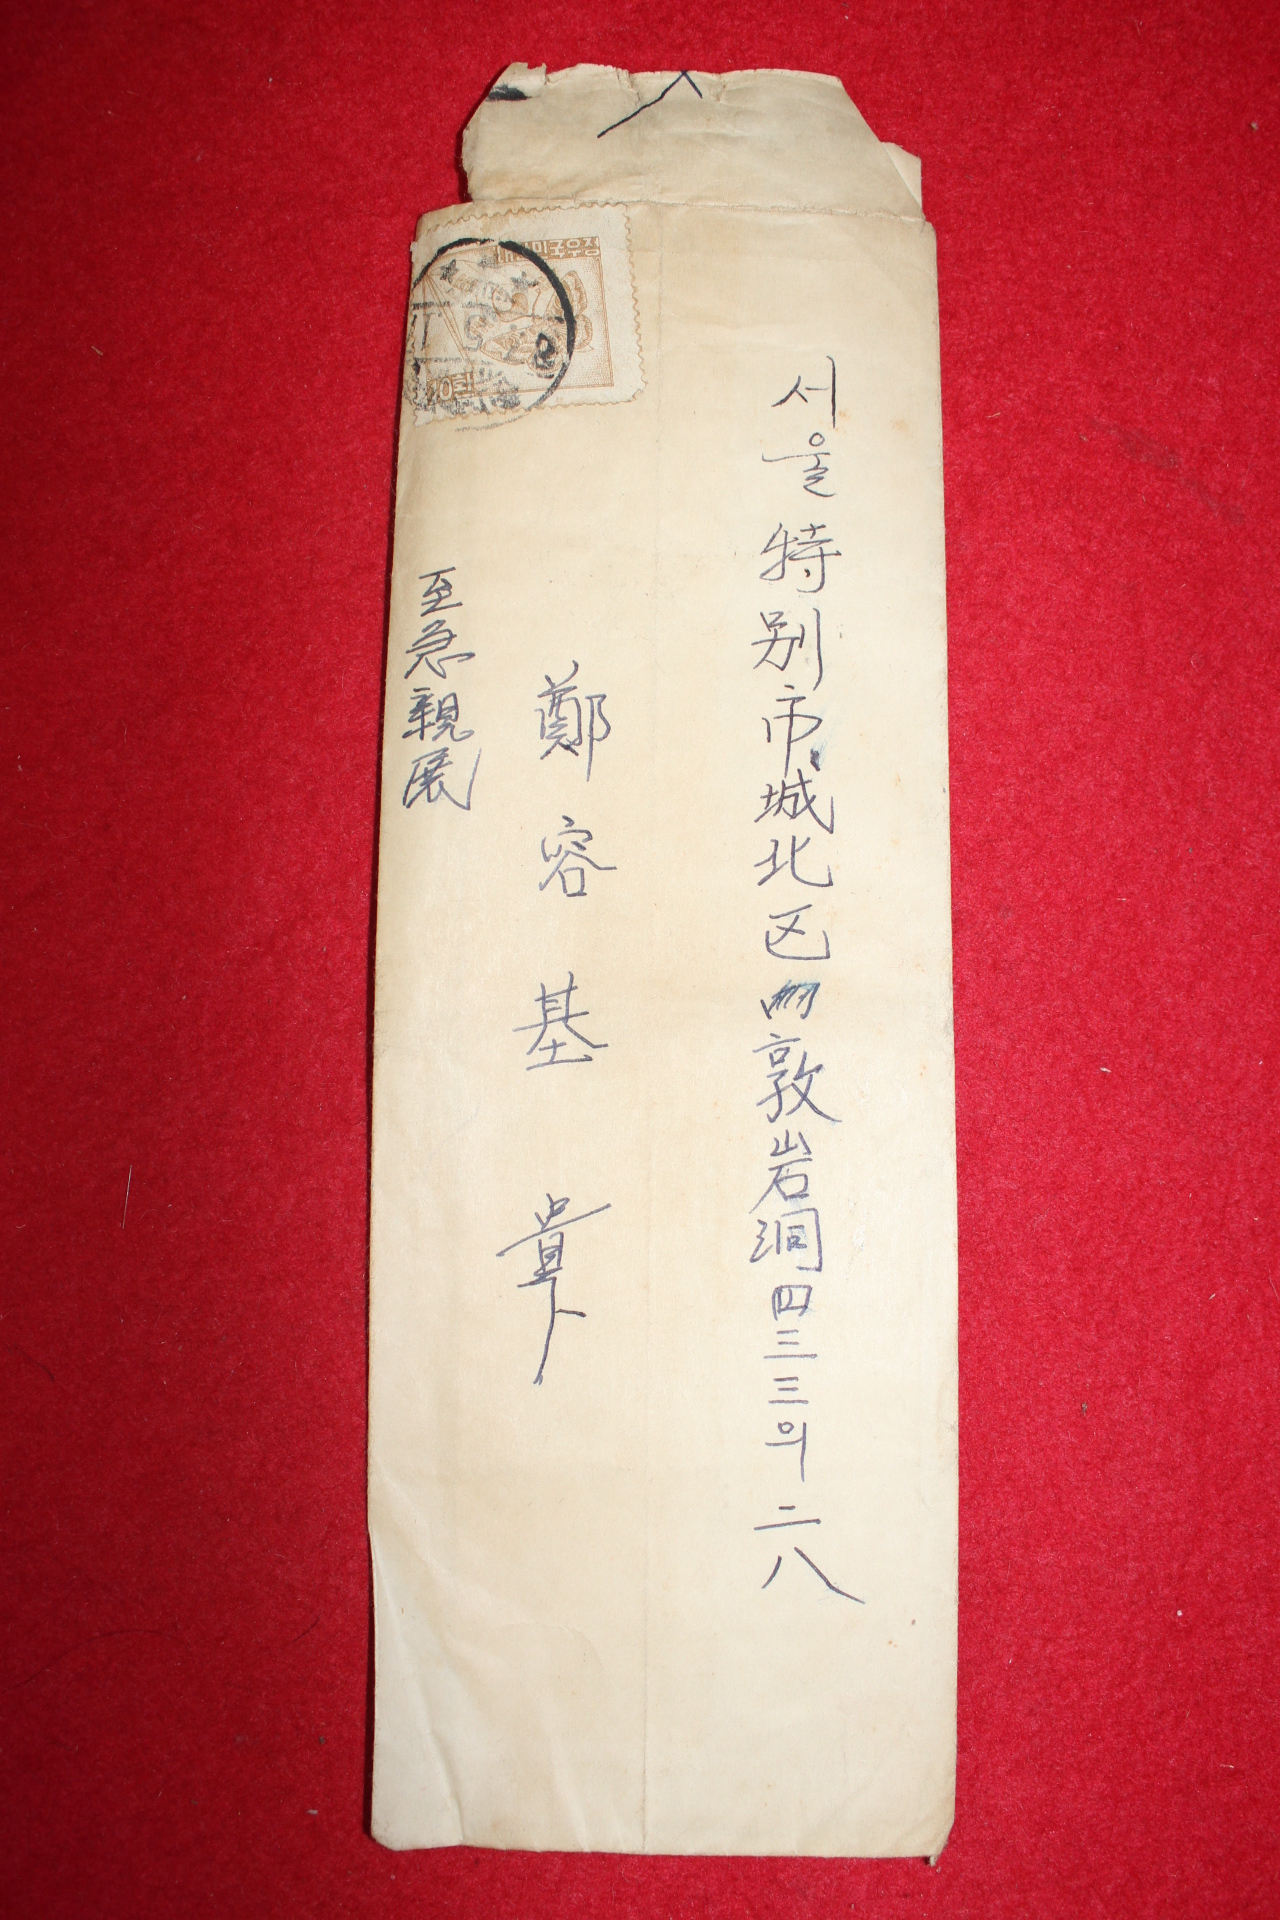 서울特別市城北区敦岩洞四三三의二八
鄭容基 貴下
至急親展
대한민국우정
40환